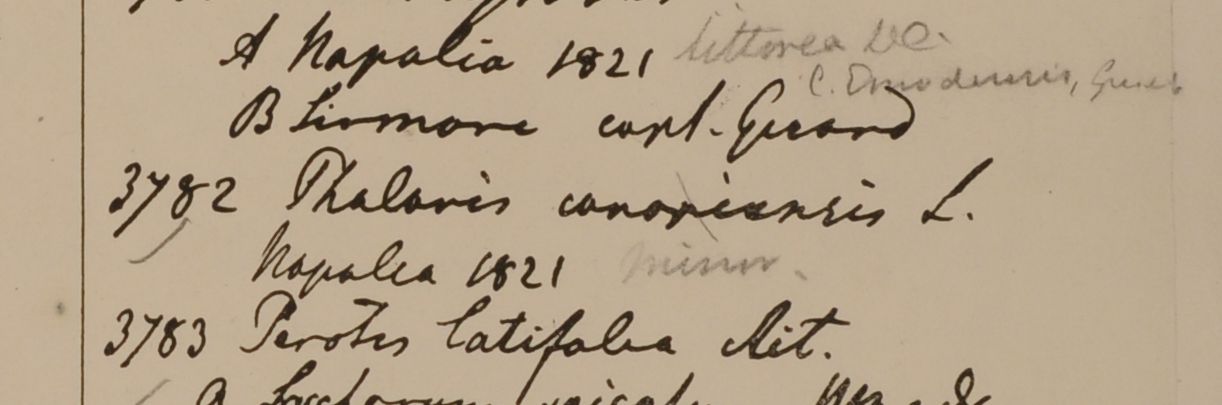 A Napalia 1821 littorea DC.
C. Emodensis,
B Sirmore capt. Gerard
3782 Phalaris canariensis L.
Napalea 1821 minor.
3783 Perotis latifolia Ait.